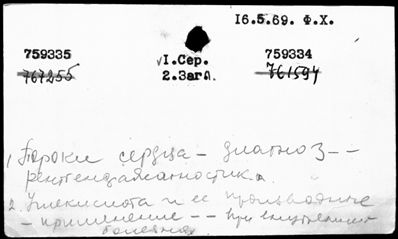 16.5.69. Ф.Х.
759335 √1.Сер. 759334
767255 2.Загл. 761594
1. Пороки сердца – диагноз – –
рентгендиагностика.
2. и ее производные
– применение – – при
болезнях